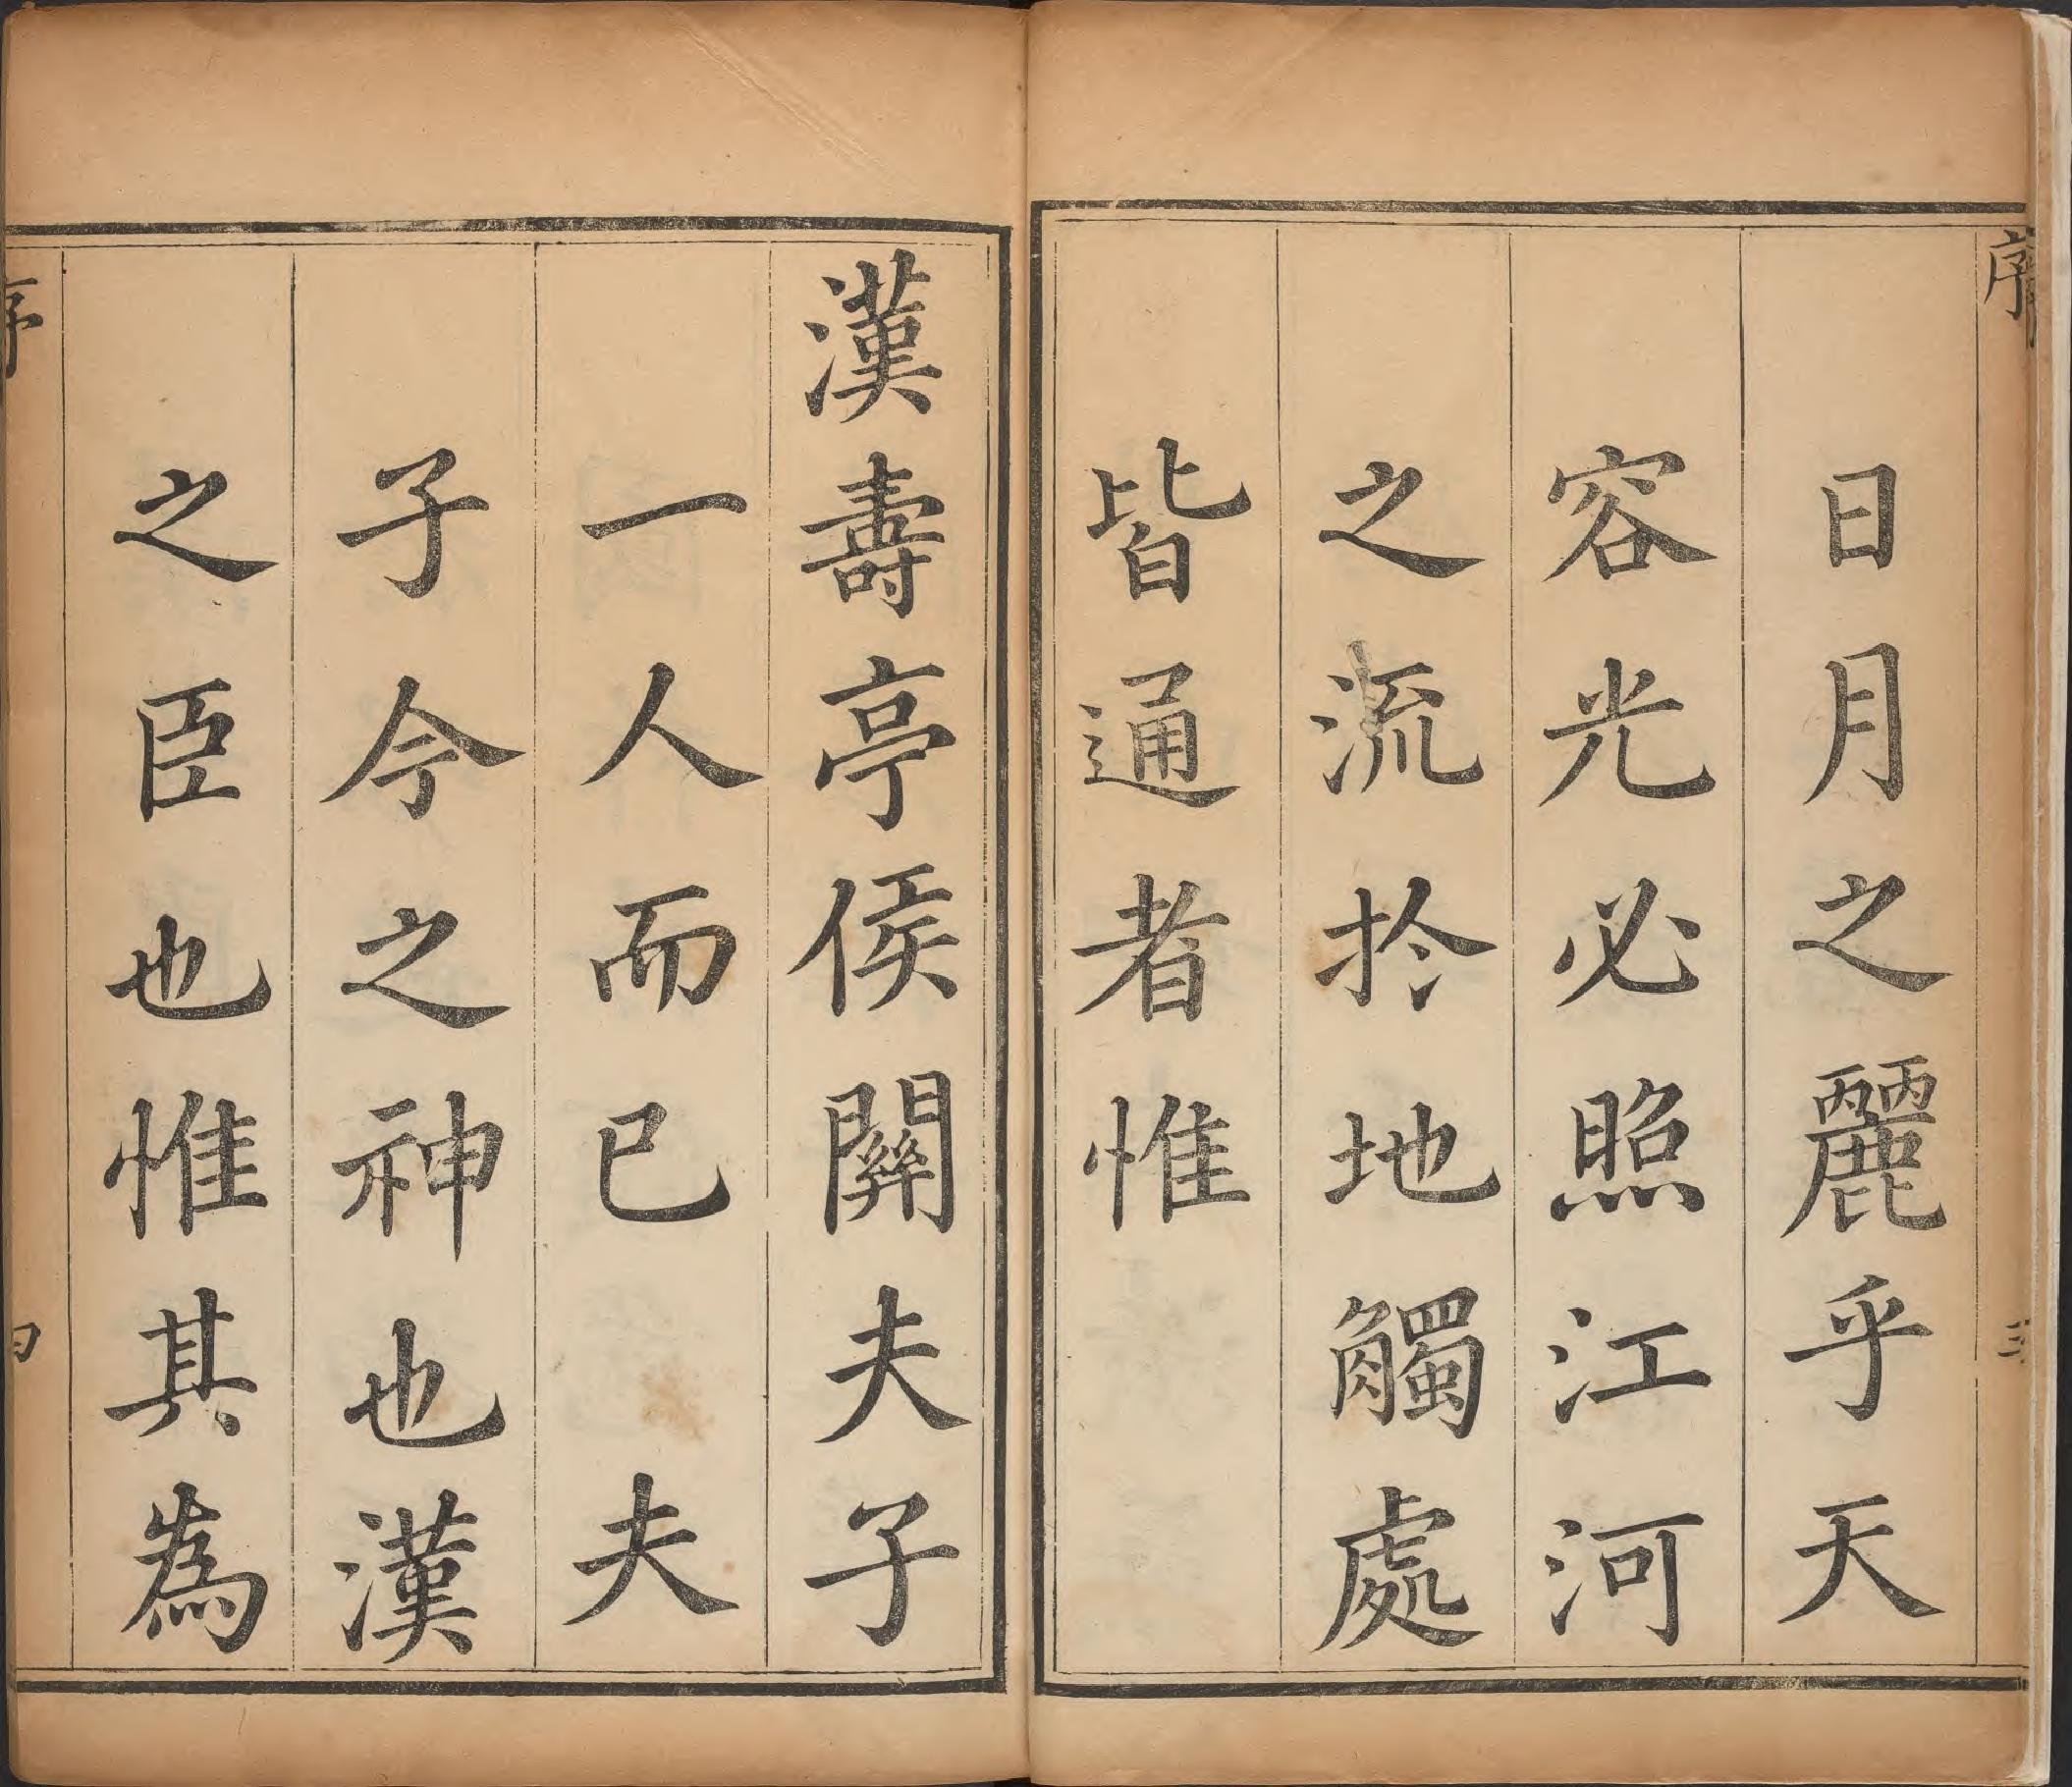 序
三
日月之麗乎天
容光必照江河
之流扵地觸處
皆通者惟
漢壽亭侯關夫子
一人而已夫
子今之神也漢
之臣也惟其為
序